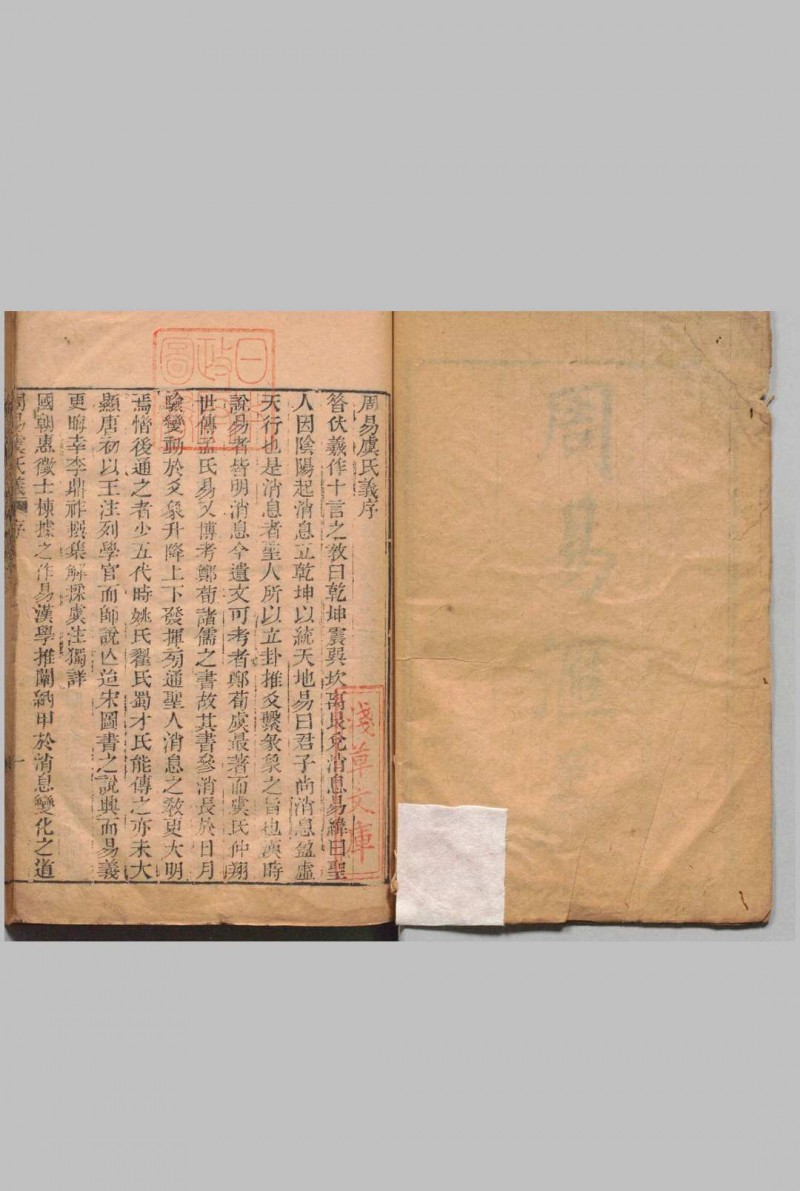 周易虞氏義序
昝伏羲作十言之敎曰乾坤震巽坎离艮兌消息易緯曰聖
人因陰陽起消息立乾坤以統天地易曰君子尚消息盈虛
天行也是消息者聖人所以立卦推爻繫彖象之旨也漢時
說易者皆明消息今遺文可考者鄭荀虞最著而虞氏仲翔
世傳孟氏易又博考鄭荀諸儒之書故其書參消長於日月
驗變動於爻象升降上下發揮旁通聖人消息之敎更大明
焉惜後通之者少五代時姚氏翟氏蜀才氏能傳之亦未大
顯唐初以王注列學官而師說亾迨宋圖書之說興而易義
更晦幸李鼎祚撰集解採虞注獨詳
國朝惠徵士棟據之作易漢學推闡納甲於消息變化之道
周易虞氏義 序 一
淺草文庫
日
政
圖
周